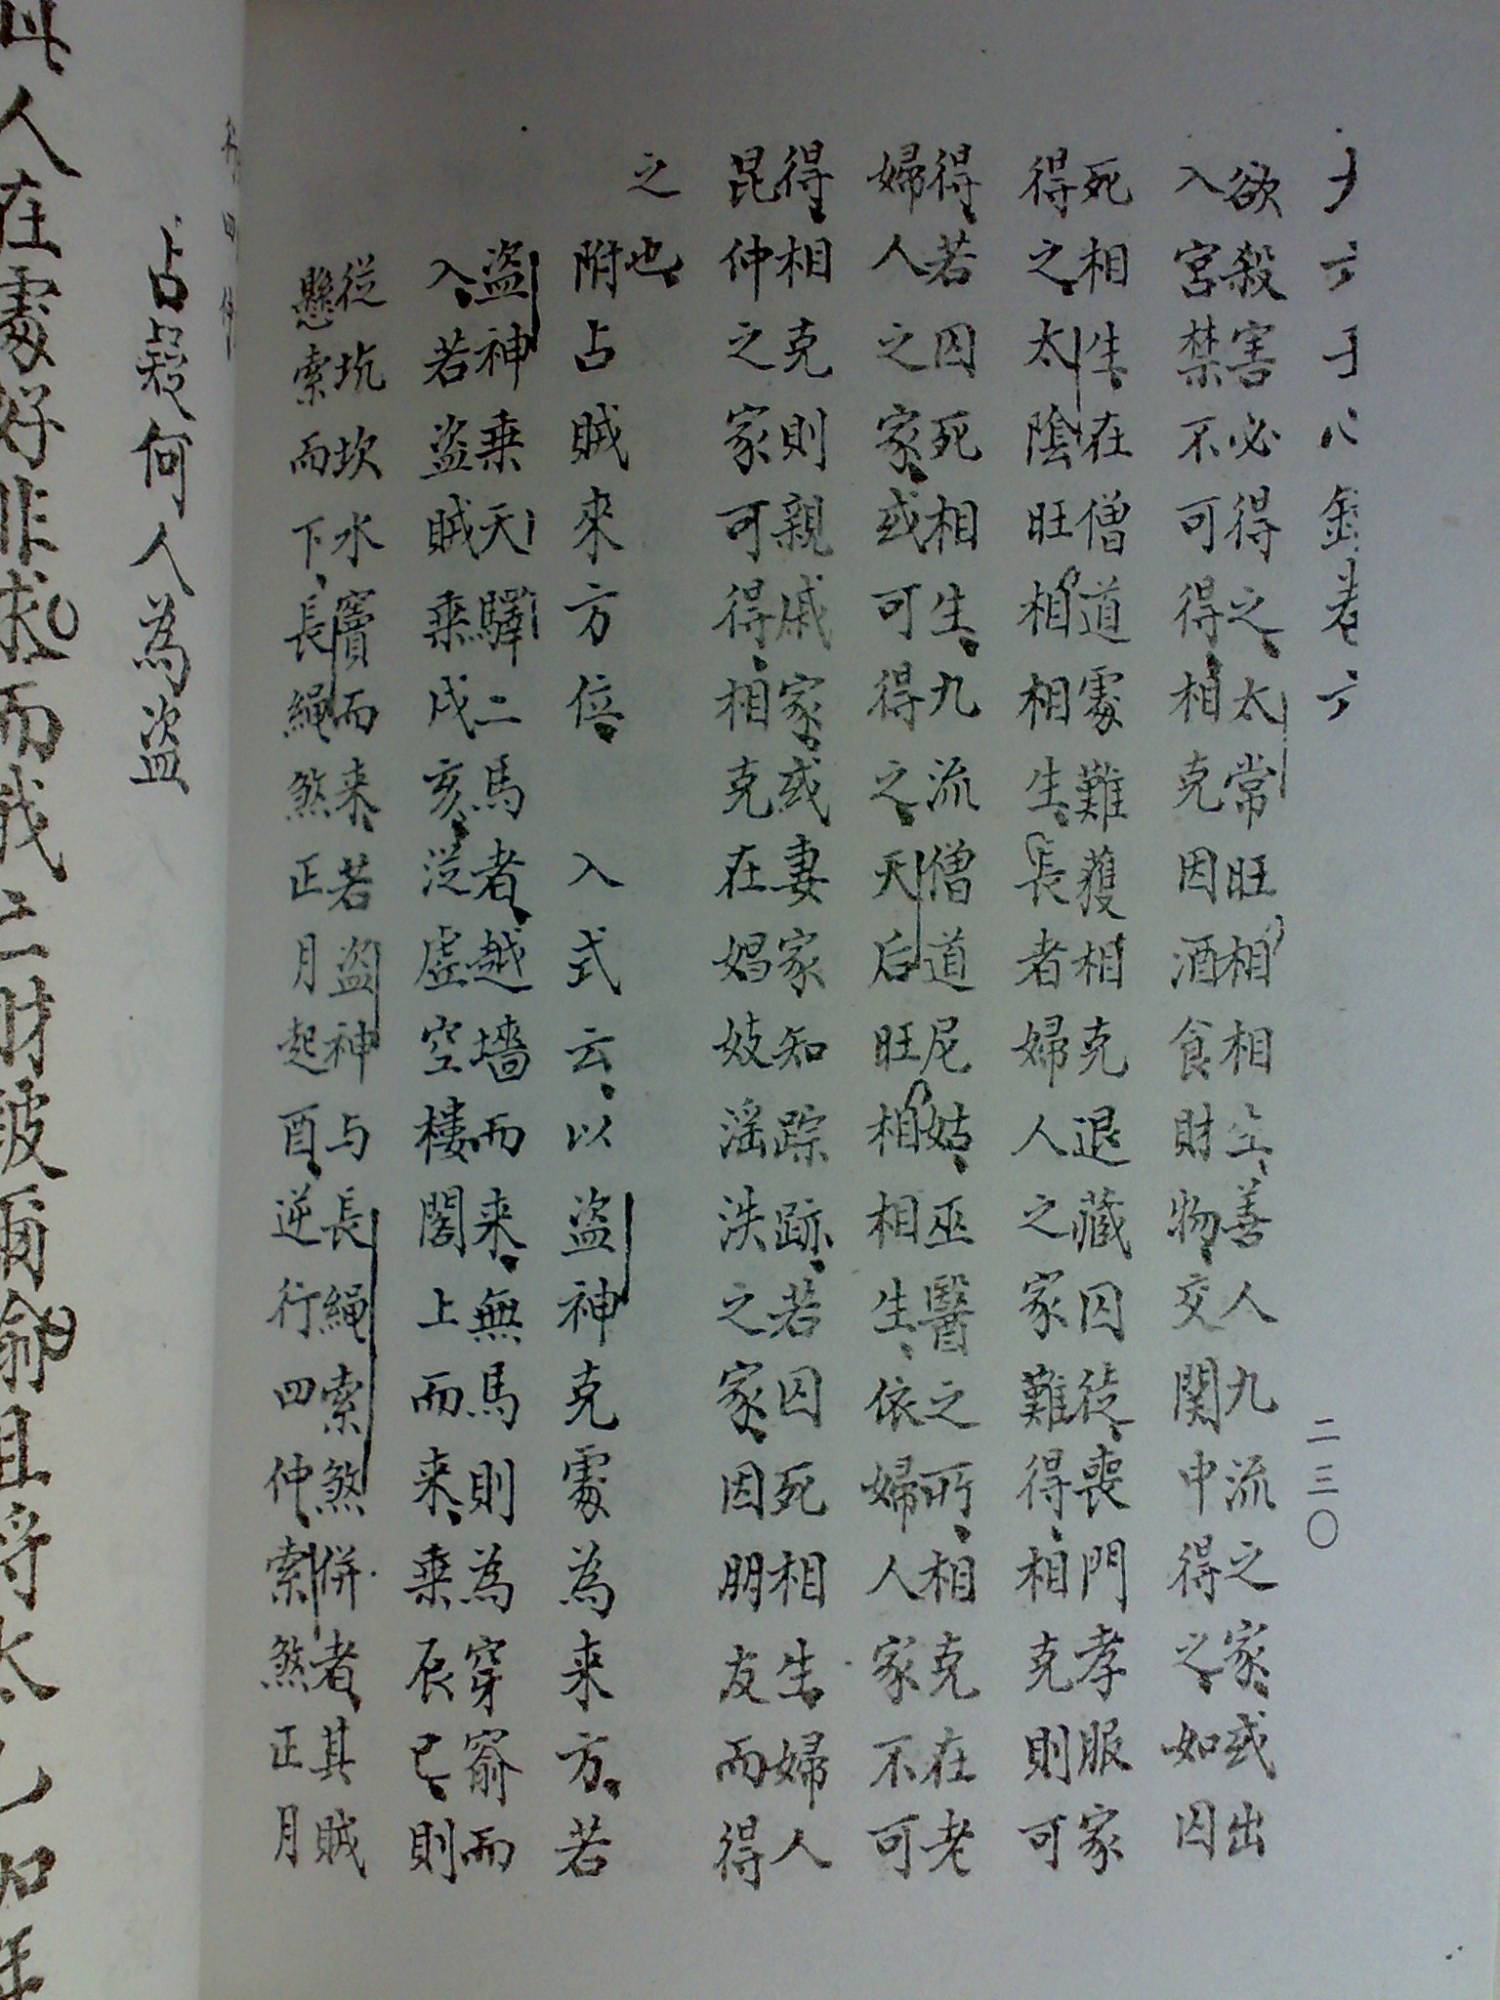 二三〇
欲殺害必得之太常旺相相生善人九流之家或出
入宮禁不可得相克因酒食財物交関中得之如囚
死相生在僧道處難獲相克退藏囚徒喪門孝服家
得之太陰旺相相生長者婦人之家難得相克則可
得若囚死相生九流僧道尼姑巫醫之所相克在老
婦人之家或可得之天后旺相相生依婦人家不可
得相克則親戚家或妻家知踪跡若囚死相生婦人
昆仲之家可得相克在娼妓淫泆之家因朋友而得
之也
附占賊來方位 入式云以盜神克處為来方若
盜神乗天驛二馬者越墻而来無馬則為穿窬而
入若盜賊乗戌亥従虛空樓閣上而来乗辰巳則
従坑坎水竇而来若盜神与長繩索煞併者其賊
懸索而下長繩煞正月起酉逆行四仲索煞正月
占疑何人為盜